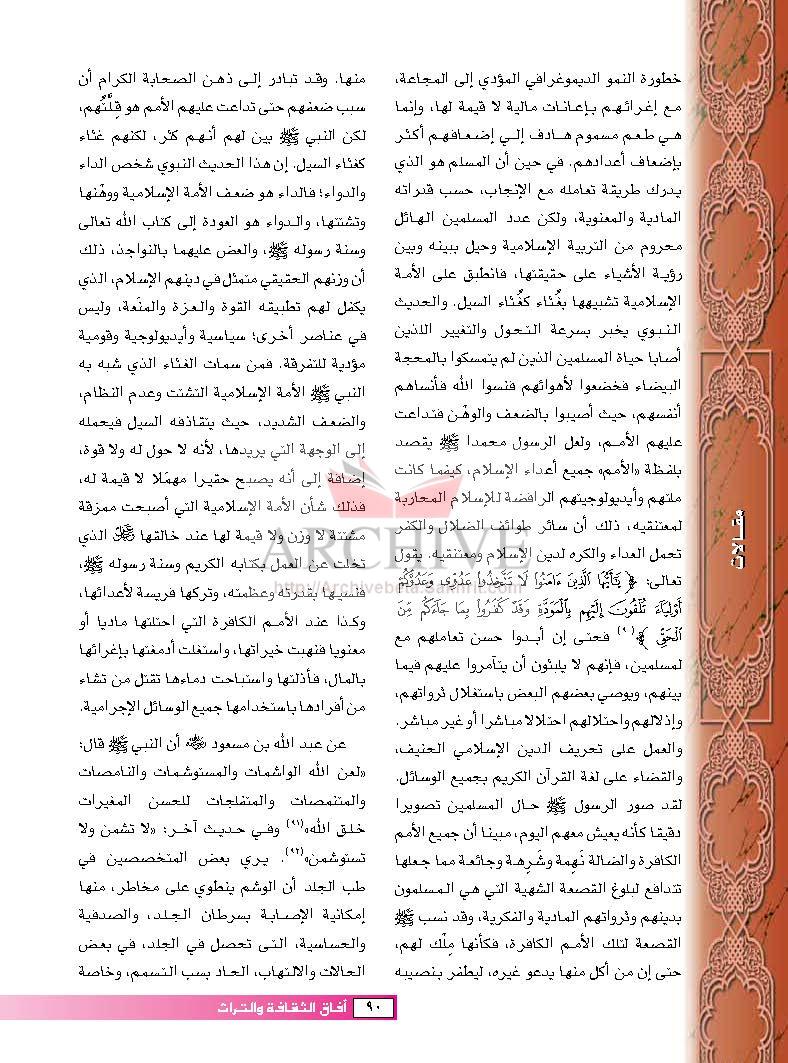 خطورة النمو الديموغرافي المؤدي إلى المجاعة،
مع إغرائهم بإعانات مالية لا قيمة لها، وإنما
هي طعم مسموم هادف إلي إضعافهم أكثر
بإضعاف أعدادهم. في حين أن المسلم هو الذي
يدرك طريقة تعامله مع الإنجاب، حسب قدراته
المادية والمعنوية، ولكن عدد المسلمين الهائل
محروم من التربية الإسلامية وحيل ببينه وبين
رؤية الأشياء على حقيقتها، فانطبق على الأمة
الإسلامية تشبيهها بغُثاء كغُثاء السيل. والحديث
النبوي يخبر بسرعة التحول والتغيير اللذين
أصابا حياة المسلمين الذين لم يتمسكوا بالمحجة
البيضاء فخضعوا لأهوائهم فنسوا الله فأنساهم
أنفسهم، حيث أصيبوا بالضعف والوهْن فتداعت
عليهم الأمم، ولعل الرسول محمدا ﷺ يقصد
بلفظة «الأمم» جميع أعداء الإسلام، كيفما كانت
ملتهم وأيديولوجيتهم الرافضة للإسلام المحاربة
لمعتنقيه، ذلك أن سائر طوائف الضلال والكفر
تحمل العداء والكره لدين الإسلام ومعتنقيه. يقول
تعالى: ﴿يَٰٓأَيُّهَا ٱلَّذِينَ ءَامَنُواْ لَا تَتَّخِذُواْ عَدُوِّى وَعَدُوَّكُمْ
أَوْلِيَآءَ تُلْقُونَ إِلَيْهِم بِٱلْمَوَدَّةِ وَقَدْ كَفَرُواْ بِمَا جَآءَكُم مِّنَ
ٱلْحَقِّ﴾(٩٠) فحتى إن أبدوا حسن تعاملهم مع
لمسلمين، فإنهم لا يلبثون أن يتآمروا عليهم فيما
بينهم، ويوصي بعضهم البعض باستغلال ثرواتهم،
وإذلالهم واحتلالهم احتلالا مباشرا أو غير مباشر.
والعمل على تحريف الدين الإسلامي الحنيف،
والقضاء على لغة القرآن الكريم بجميع الوسائل.
لقد صور الرسول ﷺ حال المسلمين تصويرا
دقيقا كأنه يعيش معهم اليوم، مبينا أن جميع الأمم
الكافرة والضالة نَهِمة وشَرِهة وجائعة مما جعلها
تتدافع لبلوغ القصعة الشهية التي هي المسلمون
بدينهم وثرواتهم المادية والفكرية، وقد نسب ﷺ
القصعة لتلك الأمم الكافرة، فكأنها مِلْك لهم،
حتى إن من أكل منها يدعو غيره، ليظفر بنصيبه
منها. وقد تبادر إلى ذهن الصحابة الكرام أن
سبب ضعفهم حتى تداعت عليهم الأمم هو قِلَّتُهم،
لكن النبي ﷺ بين لهم أنهم كثر، لكنهم غثاء
كغثاء السيل. إن هذا الحديث النبوي شخص الداء
والدواء؛ فالداء هو ضعف الأمة الإسلامية ووهْنها
وتشتتها، والدواء هو العودة إلى كتاب الله تعالى
وسنة رسوله ﷺ، والعض عليهما بالنواجذ، ذلك
أن وزنهم الحقيقي متمثل في دينهم الإسلام، الذي
يكفل لهم تطبيقه القوة والعزة والمنَعة، وليس
في عناصر أخرى؛ سياسية وأيديولوجية وقومية
مؤدية للتفرقة. فمن سمات الغثاء الذي شبه به
النبي ﷺ الأمة الإسلامية التشتت وعدم النظام،
والضعف الشديد، حيث يتقاذفه السيل فيحمله
إلى الوجهة التي يريدها، لأنه لا حول له ولا قوة،
إضافة إلى أنه يصبح حقيرا مهمَلا لا قيمة له،
فذلك شأن الأمة الإسلامية التي أصبحت ممزقة
مشتتة لا وزن ولا قيمة لها عند خالقها ﷻ الذي
تخلت عن العمل بكتابه الكريم وسنة رسوله ﷺ،
فنسيها بقدرته وعظمته، وتركها فريسة لأعدائها،
وكذا عند الأمم الكافرة التي احتلتها ماديا أو
معنويا فنهبت خيراتها، واستغلت أدمغتها بإغرائها
بالمال، فأذلتها واستباحت دماءها تقتل من تشاء
من أفرادها باستخدامها جميع الوسائل الإجرامية.
عن عبد الله بن مسعود ﷺ أن النبي ﷺ قال:
«لعن الله الواشمات والمستوشمات والنامصات
والمتنمصات والمتفلجات للحسن المغيرات
خلق الله»(٩١) وفي حديث آخر: «لا تشمن ولا
تستوشمن»(٩٢). يري بعض المتخصصين في
طب الجلد أن الوشم ينطوي على مخاطر، منها
إمكانية الإصابة بسرطان الجلد، والصدفية
والحساسية، التى تحصل في الجلد، في بعض
الحالات والالتهاب، الحاد بسب التسمم، وخاصة
مقالات
ARCHIVE
http://Archivebeta.Sakhrit.com
٩٠
آفاق الثقافة والتراث